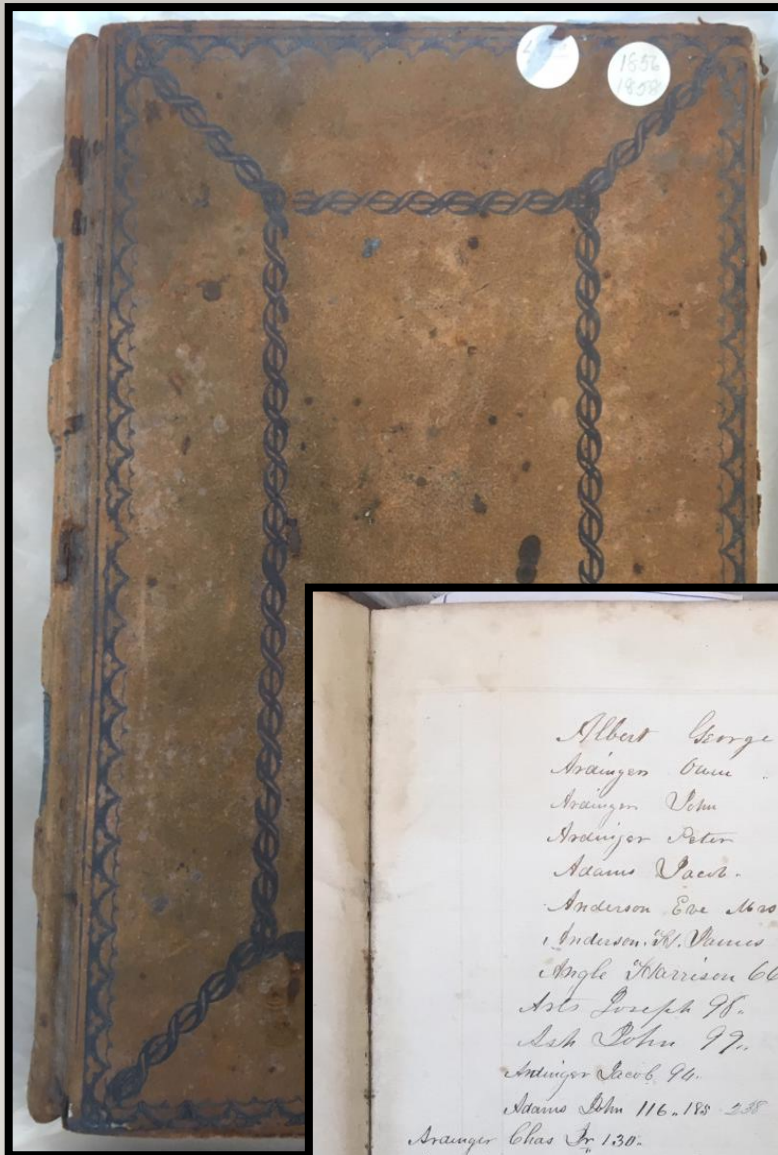 1856
1858
Albert George
Ardinger Owen
Ardinger John
Ardinger Peter
Adams Jacob.
Anderson Eve Mrs
Anderson. H. James
Angle Harrison 66
Arts Joseph 98.
Ash John 99.
Ardinger Jacob 94.
Adams John 116. 185 238
Ardinger Chas Jr 130.